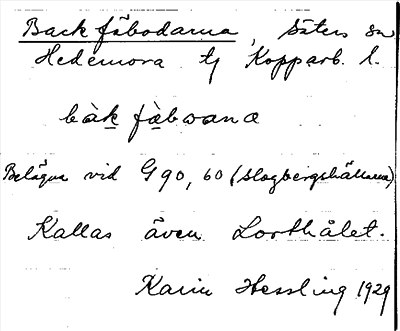 Backfäbodarna, Säters sn
Hedemora tg Kopparb. l.
bàk fàboana
Belägna vid G 90, 60 (Slogbergshällarna)
Kallas även Lorthålet.
Karin Hessling 1929